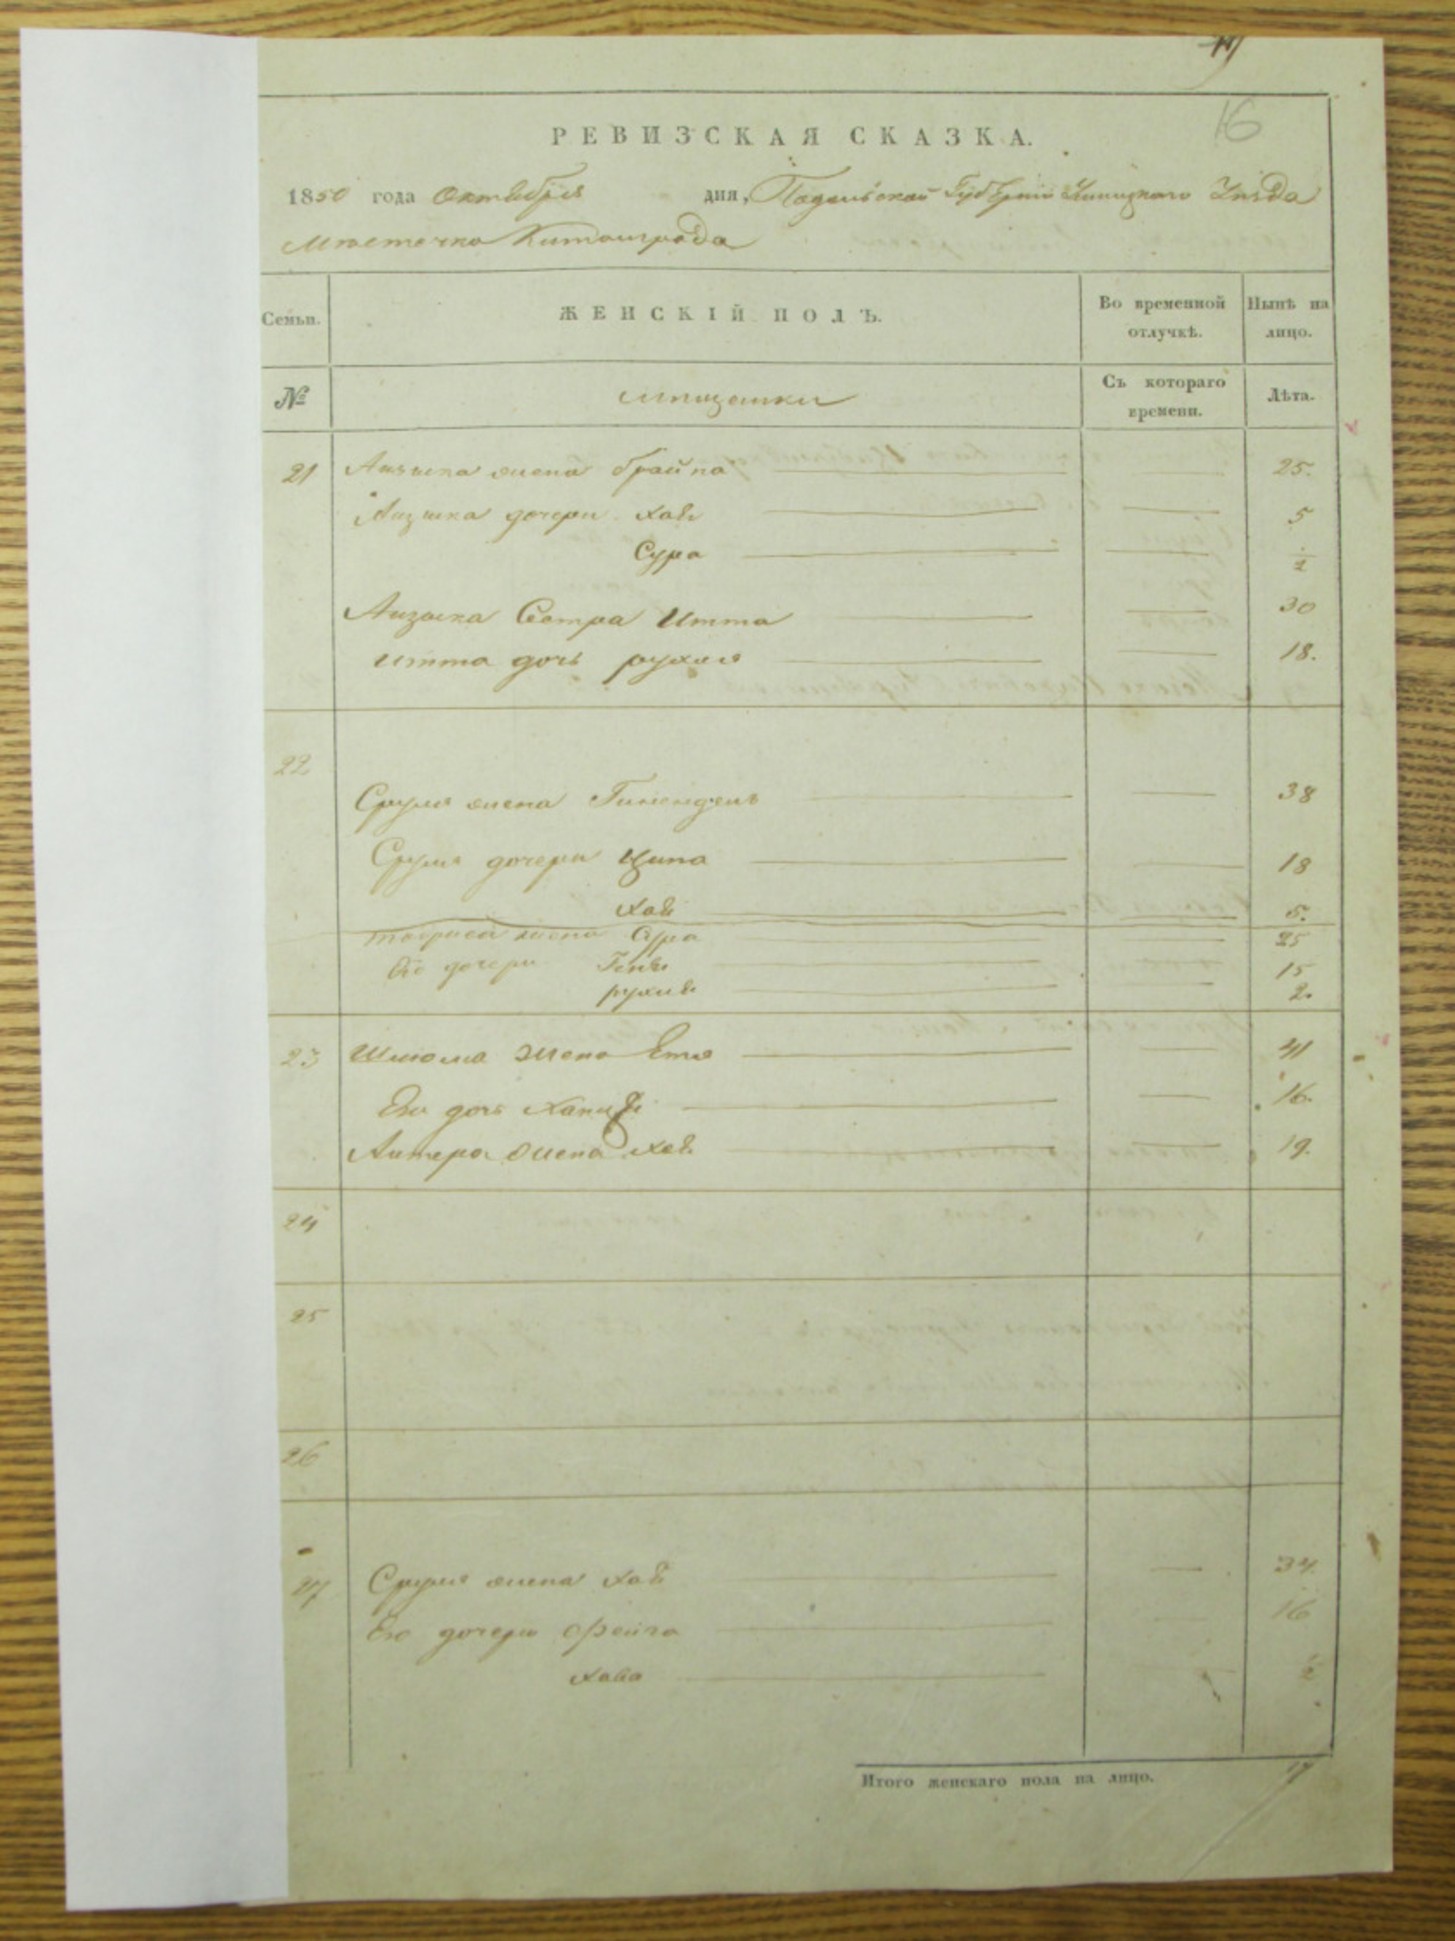 16
РЕВИЗСКАЯ СКАЗКА.
1850 года Октября дня, Подольской Губернии Ушицкого Уезда
Местечка Китайгрода
Семьи. ЖЕНСКІЙ ПОЛЪ. Во временной отлучкѣ. Нынѣ на лицо.
№ мещанки Съ котораго времени. Лѣта.
21 Айзыка жена Брайна 25.
Айзыка дочери Хая 5
Сура 1/2
Айзыка Сестра Итта 30
Итта дочь рухля 18.
22
Сруля жена 38
Сруля дочери Ципа 18
Хая 5.
жена Сура 25
Его дочери Геня 15
рухля 2.
23 Шлиома жена Етя 41
Его дочь 16.
Литера жена Хая 19.
24
25
26
27 Сруля жена Хая 34
Его дочери Фейга 16
Хава 1/2
Итого женскаго пола на лицо. 17